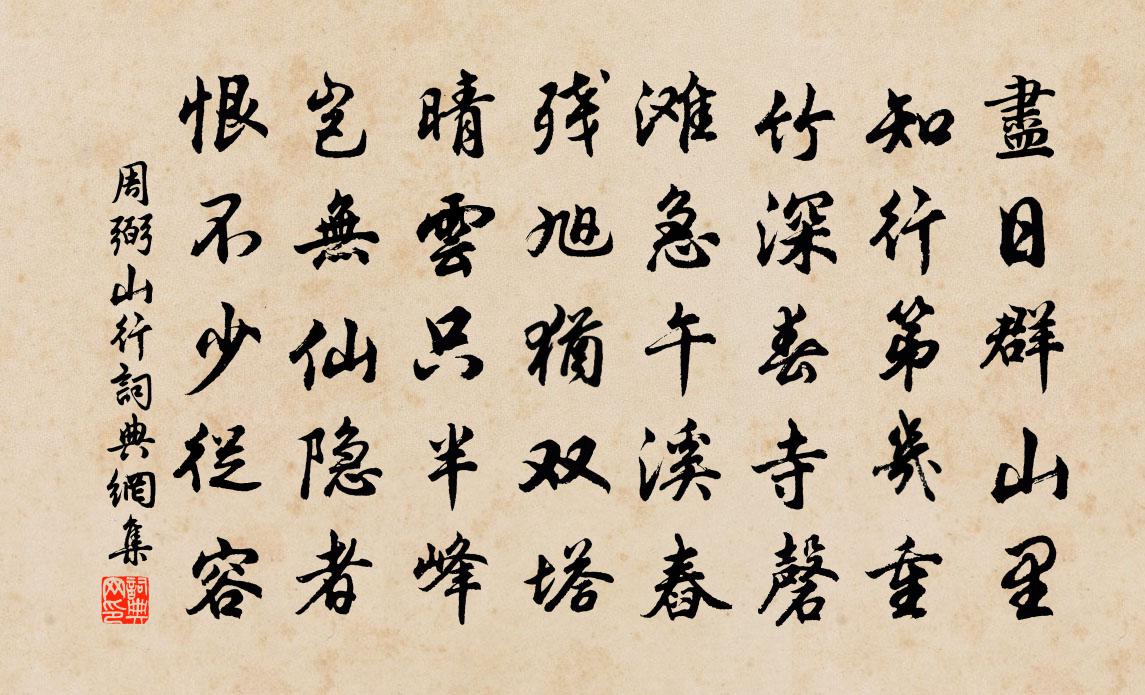 盡日群山里
知行第幾重
竹深春寺磬
滩急午溪舂
残旭猶双塔
晴雲只半峰
岂無仙隐者
恨不少從容
周弼山行詞典網集
詞典网印